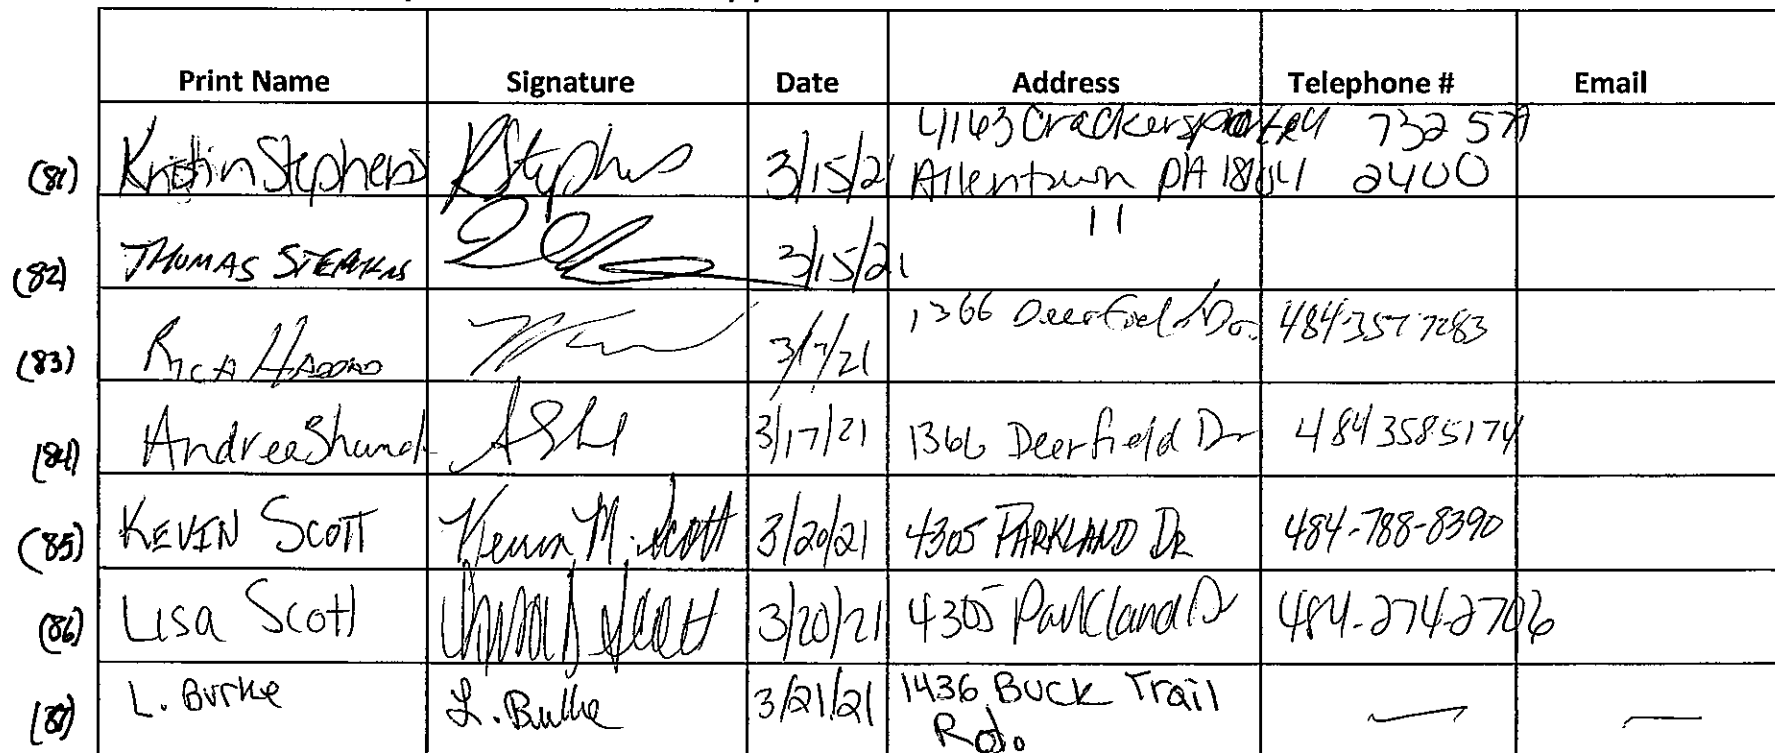 Print Name Signature Date Address Telephone # Email
(81) Kristin Stephens KStephens 3/15/21 4163 Crackersport Rd 732 579
Allentown PA 18104 2400
(82) THOMAS STEPHENS 3/15/21 11
(83) RICH HADDAD 3/17/21 1366 Deerfield Dr. 484 357 7283
(84) Andrea 3/17/21 1366 Deerfield Dr 484 358 5174
(85) KEVIN SCOTT Kevin M. Scott 3/20/21 4305 PARKLAND DR 484-788-8390
(86) Lisa Scott Scott 3/20/21 4305 Parkland Dr 484-274-2706
(87) L. Burke L. Burke 3/21/21 1436 Buck Trail
Rd.